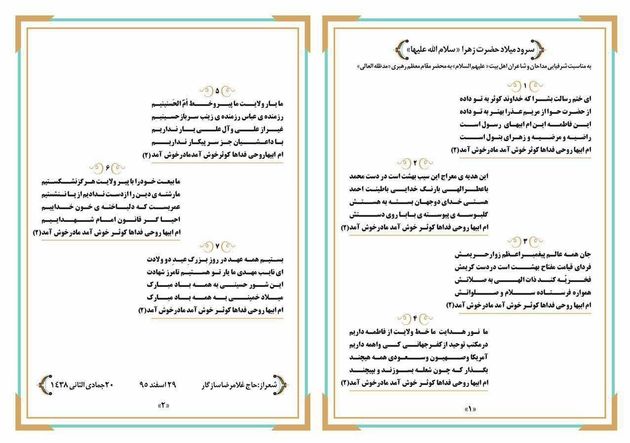 سرود میلاد حضرت زهرا «سلام الله علیها»
به مناسبت شرفیابی مداحان و شاعران اهل بیت «علیهم السلام» به محضر مقام معظم رهبری «مدظله العالی»
۱
ای ختم رسالت بشرا که خداوند کوثر به تو داده
از حضرت حوا از مریم عذرا بهتر به تو داده
این فاطمه این ام ابیهای رسول است
راضیه و مرضیه و زهرای بتول است
ام ابیها روحی فداها کوثر خوش آمد مادر خوش آمد (۲)
۲
این هدیه ی معراج این سیب بهشت است در دست محمد
با عطر الهی با رنگ خدایی با طینت احمد
هستی خدای دوجهان بسته به هستش
گلبوسه ی پیوسته ی بابا روی دستش
ام ابیها روحی فداها کوثر خوش آمد مادر خوش آمد (۲)
۳
جان همه عالم پیغمبر اعظم زوار حریمش
فردای قیامت مفتاح بهشت است در دست کریمش
فخریه کند ذات الهی به صلاتش
همواره فرستاده سلام و صلواتش
ام ابیها روحی فداها کوثر خوش آمد مادر خوش آمد (۲)
۴
ما نور هدایت ما خط ولایت از فاطمه داریم
در مکتب توحید از کفر جهانی کی واهمه داریم
آمریکا و صهیون و سعودی همه هیچند
بگذار که چون شعله بسوزند و بپیچند
ام ابیها روحی فداها کوثر خوش آمد مادر خوش آمد (۲)
«۱»
۵
ما یار ولایت ما پیرو خط امّ الحسنینیم
رزمنده ی عباس رزمنده ی زینب سرباز حسینیم
غیر از علی و آل علی یار نداریم
با داعشیان جز سر پیکار نداریم
ام ابیها روحی فداها کوثر خوش آمد مادر خوش آمد (۲)
۶
ما بیعت خود را با پیر ولایت هرگز نشکستیم
ما رشته ی دین را از دست ندادیم از پا ننشستیم
عمریست که دلباخته ی خون خداییم
احیاگر قانون امام شهداییم
ام ابیها روحی فداها کوثر خوش آمد مادر خوش آمد (۲)
۷
بستیم همه عهد در روز بزرگ عید دو ولادت
ای نایب مهدی ما یار تو هستیم تا مرز شهادت
این شور حسینی به همه باد مبارک
میلاد خمینی به همه باد مبارک
ام ابیها روحی فداها کوثر خوش آمد مادر خوش آمد (۲)
شعر از: حاج غلامرضا سازگار ۲۹ اسفند ۹۵ ۲۰ جمادی الثانی ۱۴۳۸
«۲»